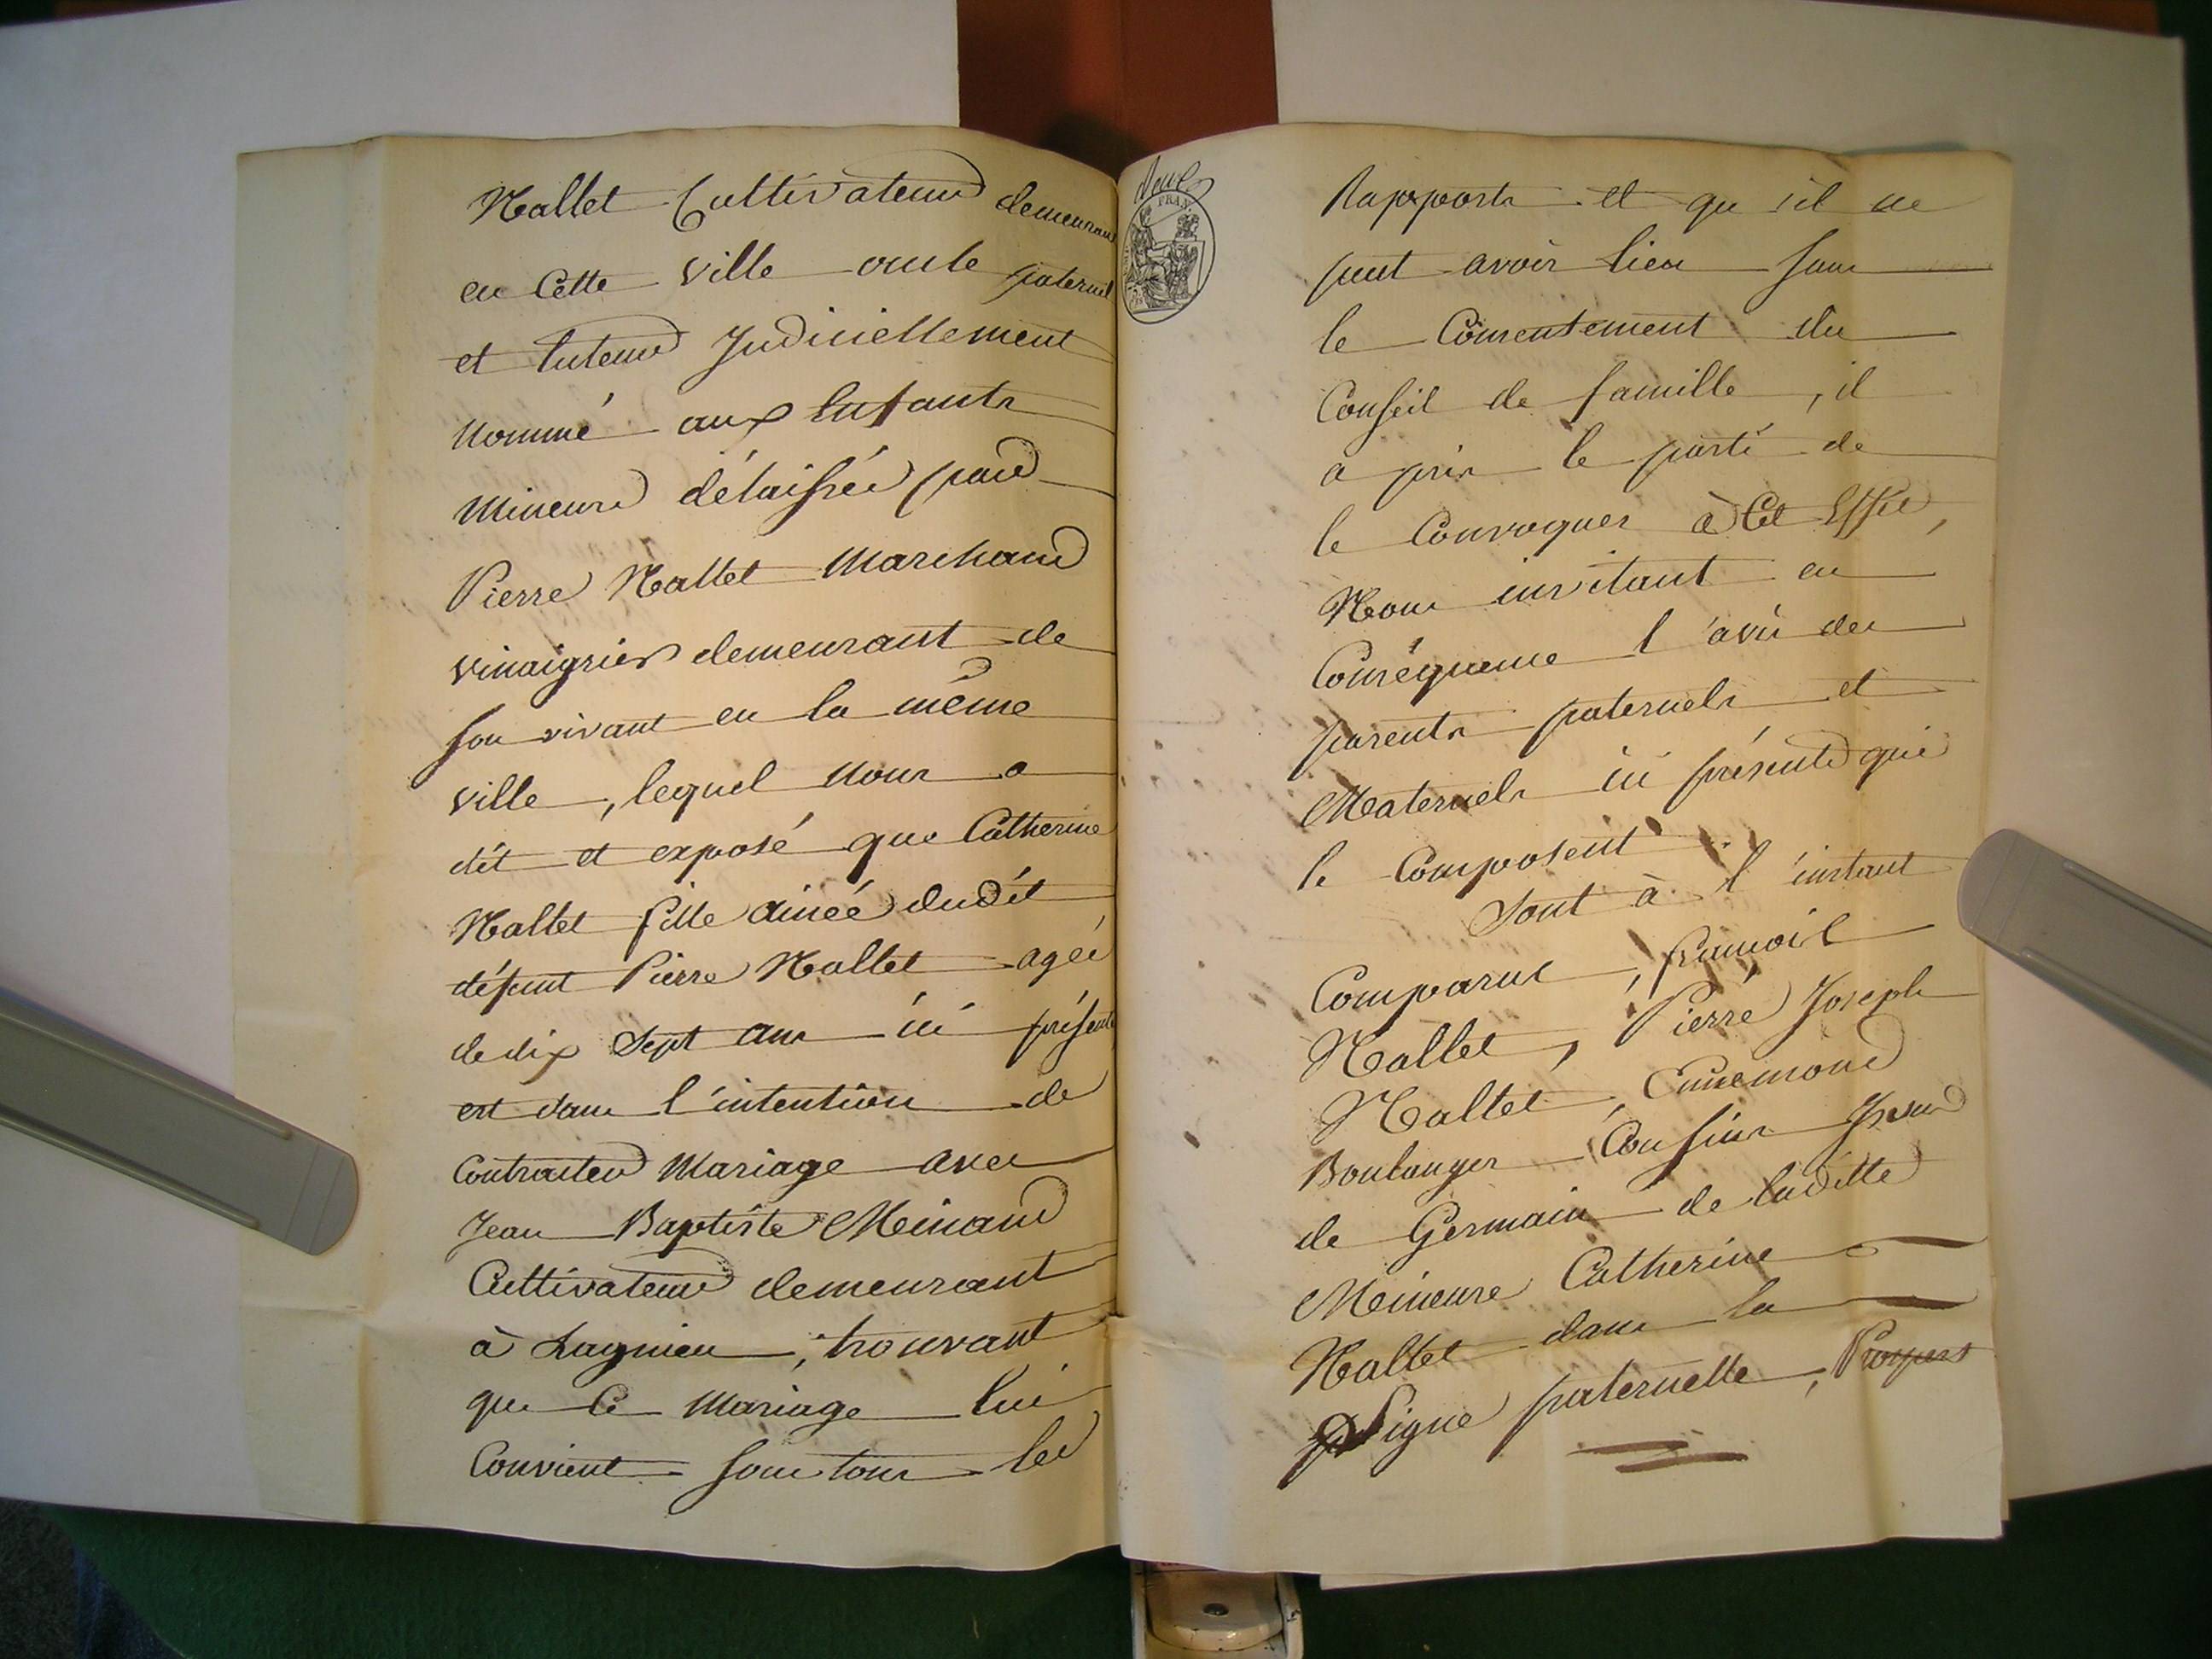 Nallet Cultivateur demeurant
en Cette Ville oncle paternel
et tuteur Judiciellement
nommé aux Enfants
Mineurs délaissés par
Pierre Nallet Marchand
vinaigrier demeurant de
son vivant en la même
ville, lequel nous a
dit et exposé que Catherine
Nallet fille ainée dudit
défunt Pierre Nallet agée
de dix sept ans ici présente
est dans l'intention de
Contracter Mariage avec
Jean Baptiste Meinand
Cultivateur demeurant
à Lagnieu, trouvant
que Ce Mariage lui
Convient sous tous les
FRAN
Rapports et qu'il ne
peut avoir lieu sans
le Consentement du
Conseil de famille, il
a pris le parti de
le Convoquer à Cet Effet,
Nous invitant en
Conséquence l'avis des
parents paternels et
Maternels ici présents qui
le Composent.
Sont à l'instant
Comparus, françois
Nallet, Pierre Joseph
Nallet, Ennemond
Boulanger Cousins
de Germain de laditte
Mineure Catherine
Nallet dans la
Ligne paternelle, Prosper